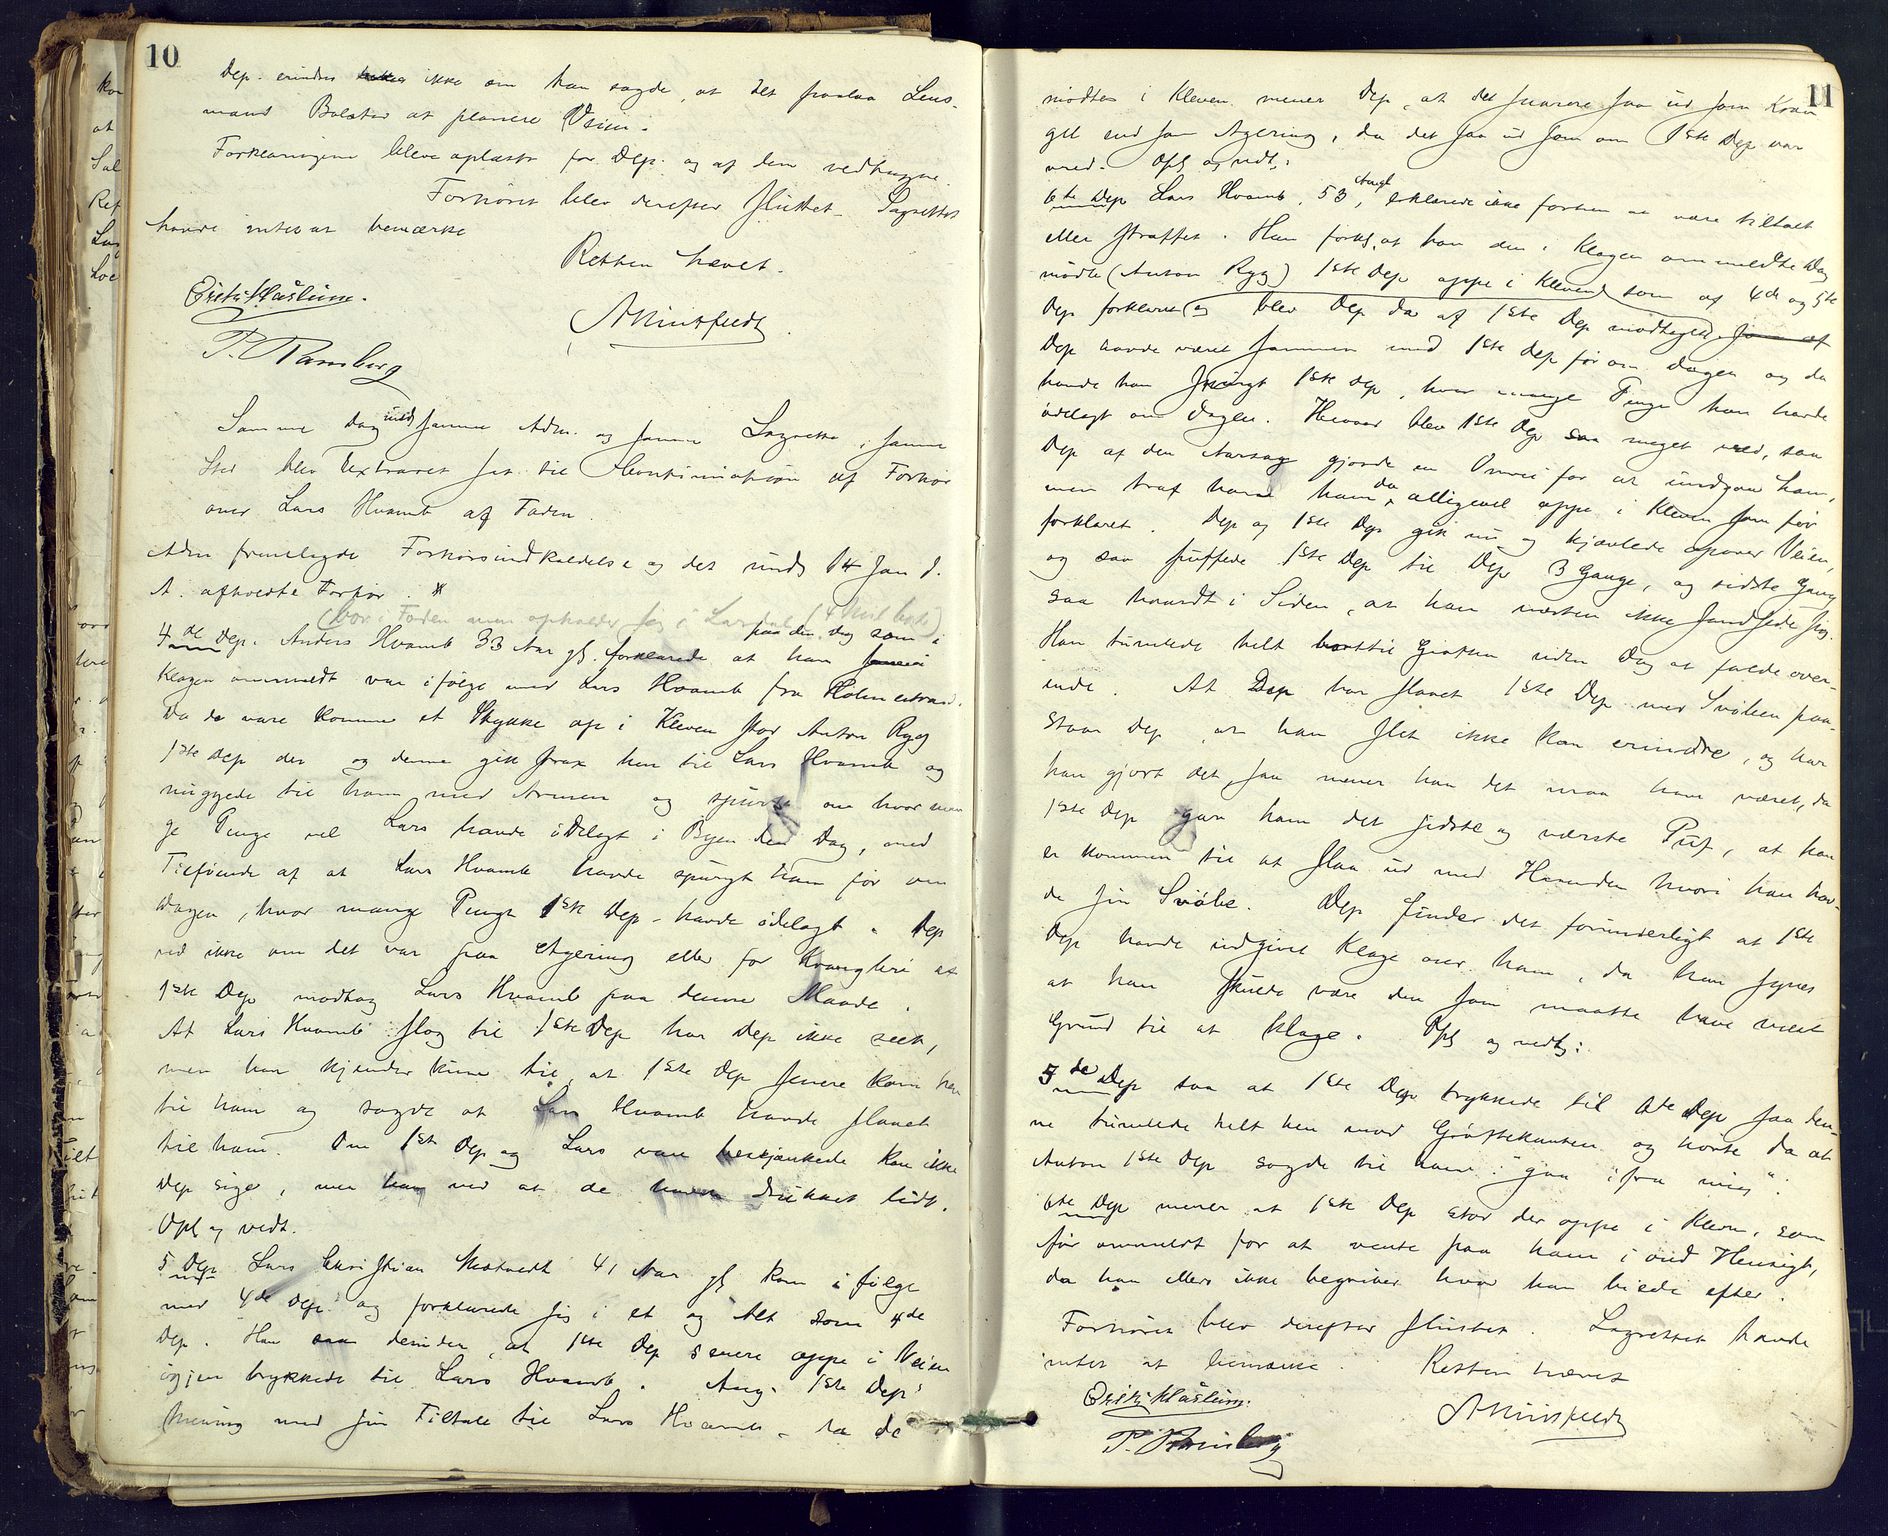 10
Dep. erindrer ikke om han sagde, at det paalaa Lens-
mand Bolstad at planere Veien.
Forklaringerne bleve oplæste for Dep. og af dem vedtagne.
Forhøret blev derefter sluttet. Lagrettet
havde intet at bemærke
Retten hævet.
P. Ramberg
Samme Dag med samme Adm. og samme Lagrette i samme
Sted blev Extraret sat til Kontinuation af Forhør
over Lars Hvamb af Faden.
Adm fremlagde Forhørsindkaldelse og det under 14 Jan d.
A. afholdte Forhør.
(bor i Faden men opholder sig i
4de Dep. Anders Hvamb 33 Aar gl. forklarede at han paa den Dag som i
Klagen ommeldt var ifølge med Lars Hvamb fra Holmestrand.
Da de vare komne et Stykke op i Kleven stod Anton Ryg
1ste Dep der og denne gik strax hen til Lars Hvamb og
nuggede til ham med Armen og spurgte om hvor man
ge Penge vel Lars havde ødelagt i Byen den Dag, med
Tilføiende af at Lars Hvamb havde spurgt ham før om
Dagen, hvor mange Penge 1ste Dep. havde ødelagt. Dep
ved ikke om det var paa Agering eller for Krangleri at
1ste Dep modtog Lars Hvamb paa denne Maade.
At Lars Hvamb slog til 1ste Dep har Dep ikke seet,
men han kjender kun til, at 1ste Dep senere kom hen
til ham og sagde at Lars Hvamb havde slaaet
til ham. Om 1ste Dep og Lars vare beskjænkede kan ikke
Dep sige, men han ved at de havde drukket lidt.
Opl og vedt.
5 Dep Lars Christian 41 Aar gl kom i følge
med 4de Dep. og forklarede sig i et og Alt som 4de
Dep. Han saa desuden, at 1ste Dep senere oppe i Veien
igjen trykkede til Lars Hvamb. Ang. 1ste Dep's
Mening med sin Tiltale til Lars Hvamb, da de
11
mødtes i Kleven mener Dep, at det snarere saa ud som Kran
gel end som Agering, da det saa ud som om 1ste Dep var
vred. Opl og vedt:
6te Dep Lars Hvamb, 53 Aar gl, erklærede ikke forhen at være tiltalt
eller straffet. Han forkl. at han den i Klagen ommeldte Dag
mødte (Anton Ryg) 1ste Dep oppe i Kleven som af 4de og 5te
Dep forklaret og blev Dep da af 1ste Dep modtaget som af
Dep havde været sammen med 1ste Dep før om Dagen og da
havde han spurgt 1ste Dep, hvor mange Penge han havde
ødelagt om Dagen. Herover blev 1ste Dep saa meget vred, saa
Dep af den Aarsag gjorde en Omvei for at undgaa ham,
men traf ham da alligevel oppe i Kleven som før
forklaret. Dep og 1ste Dep gik nu og kjævlede opover Veien,
og saa puffede 1ste Dep til Dep 3 Gange, og sidste Gang
saa haardt i Siden, at han næsten ikke sandsede sig.
Han tumlede helt bort til Grøften uden dog at falde over-
ende. At Dep har slaaet 1ste Dep med Svøben paa-
staar Dep, at han slet ikke kan erindre, og har
han gjort det, saa mener han det maa have været, da
1ste Dep gav ham det sidste og værste Puf, at han
er kommen til at slaa ud med Haanden hvori han hav-
de sin Svøbe. Dep finder det forunderligt at 1ste
Dep havde indgivet Klage over ham, da han synes
at han skulde være den som maatte have været
Grund til at klage. Opl og vedt:
5de Dep saa at 1ste Dep trykkede til 6te Dep saa den-
ne tumlede helt hen mod Grøftekanten og hørte da at
Anton 1ste Dep sagde til ham: "gaa ifra mig".
6te Dep mener at 1ste Dep stod der oppe i Kleven, som
før ommeldt for at vente paa ham i ond Hensigt,
da han ellers ikke begriber hvad han biede efter.
Forhøret blev derefter sluttet. Lagrettet havde
intet at bemærke. Retten hævet
P. Ramberg